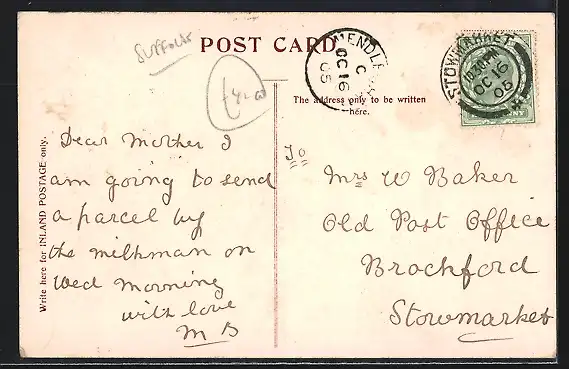 Suffolk
POST CARD.
MENDLE
C
OC 16
05
STOWMARKET
10.30PM
OC 16
05
The address only to be written
here.
Write here for INLAND POSTAGE only.
Dear Mother I
am going to send
a parcel by
the milkman on
Wed morning
with love
M B
To
Mrs W Baker
Old Post Office
Brockford
Stowmarket